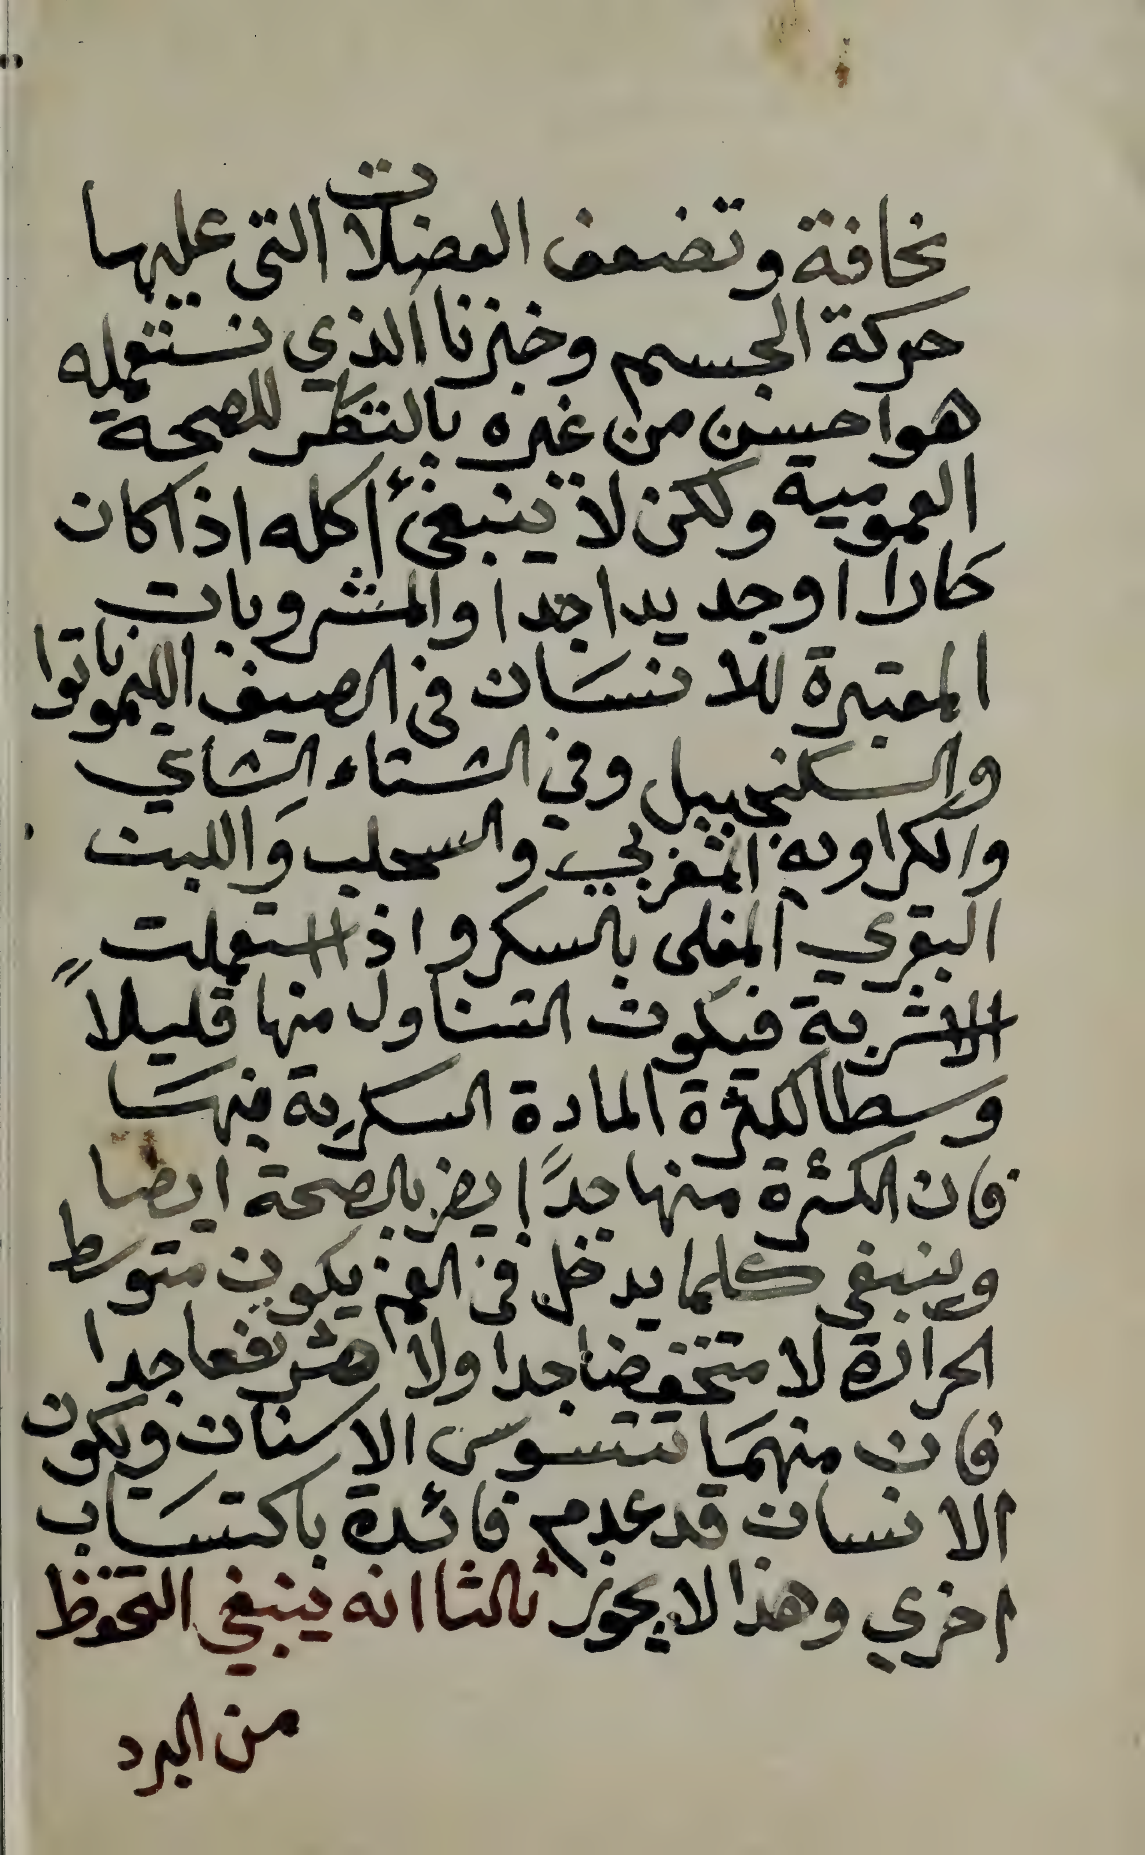 نحافة وتضعف العضلات التي عليها
حركة الجسم وخبزنا الذي نستعمله
هو احسن من غيره بالنظر للصحة
العمومية ولكن لا ينبغي أكله اذا كان
حارا اوجديدا جدا والمشروبات
المعتبرة للانسان في الصيف الليموناتوا
والسكنجبيل وفي الشتاء الشاي
والكراويه المغربي والسحلب واللبن
البقري المغلى بالسكر واذا استعملت
الاشربة فيكون التناول منها قليلاً
وسطا لكثرة المادة السكرية فيها
فان الكثرة منها جداً يضر بالصحة ايضا
وينبغي كلما يدخل في الفم يكون متوسط
الحرارة لا منخفضا جدا ولا مرتفعا جدا
فان منهما تتسوس الاسنان ويكون
الانسان قد عدم فائدة باكتساب
اخري وهذا لا يجوز ثالثا انه ينبغي التحفظ
من البرد